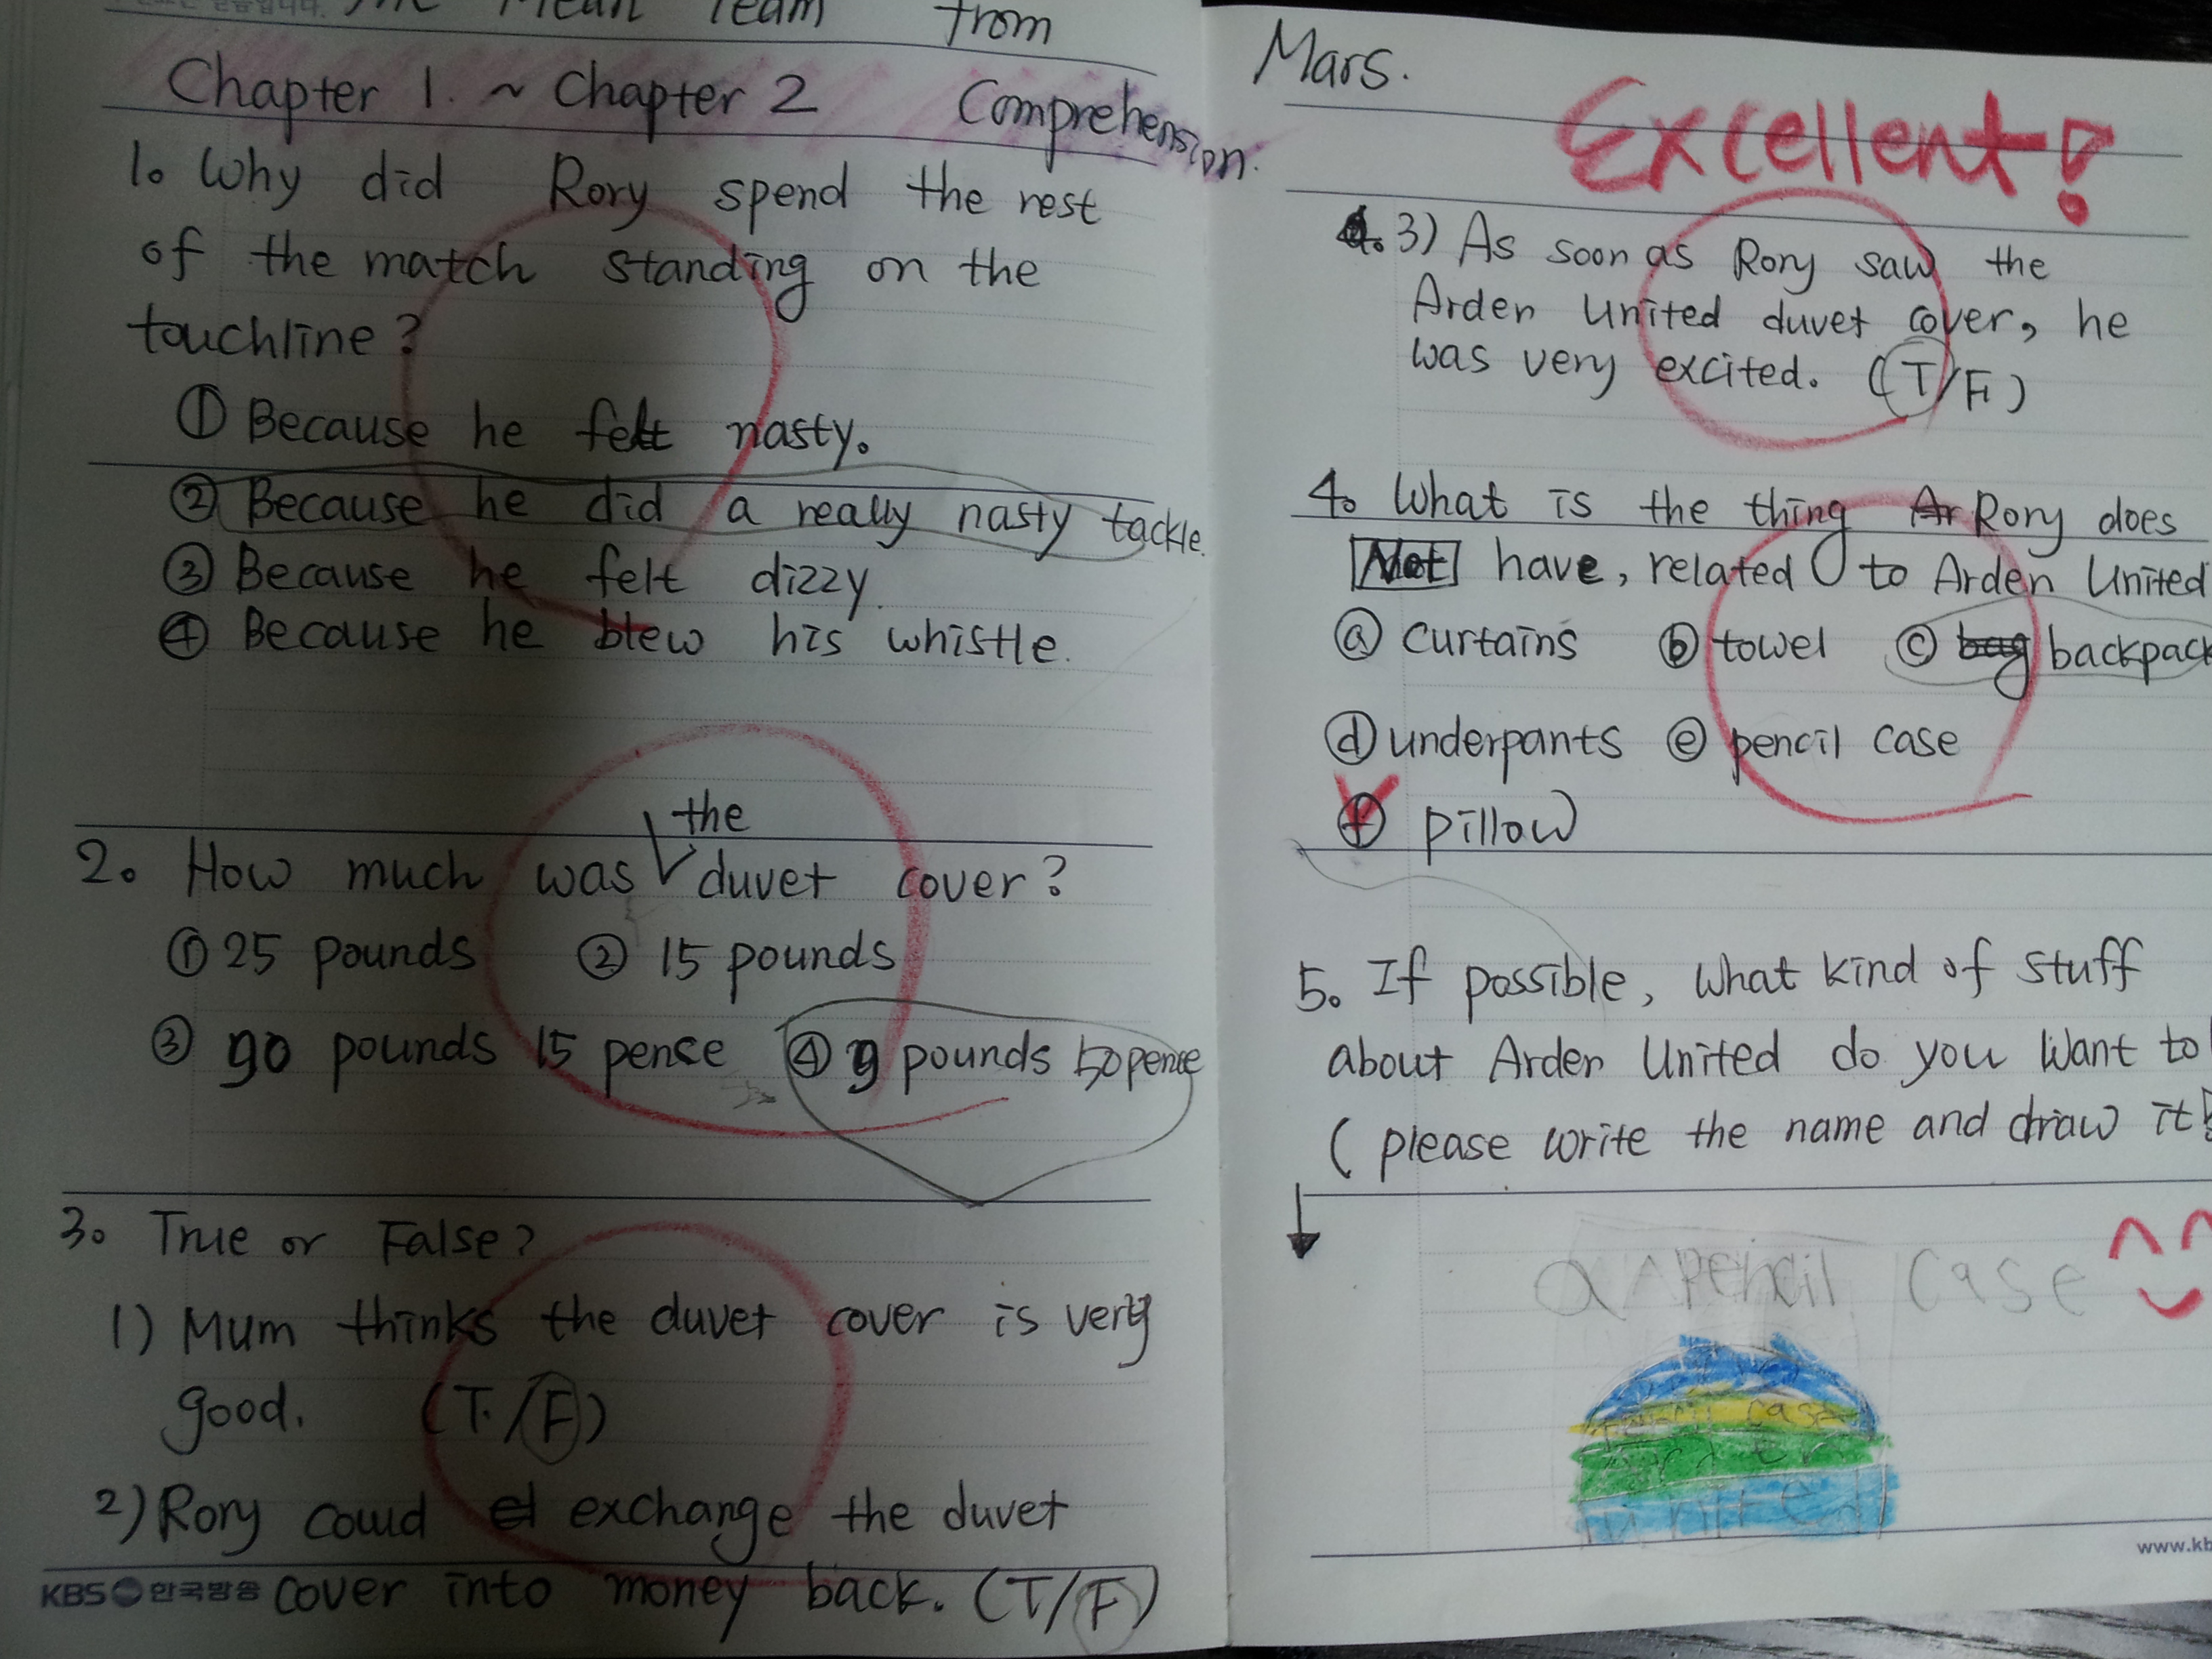 The Mean Team from
Chapter 1. ~ Chapter 2 Comprehension.
1. Why did Rory spend the rest
of the match standing on the
touchline?
① Because he felt nasty.
② Because he did a really nasty tackle.
③ Because he felt dizzy.
④ Because he blew his whistle.
the
2. How much was duvet cover?
① 25 pounds ② 15 pounds
③ 90 pounds 15 pence ④ 9 pounds 50 pence
3. True or False?
1) Mum thinks the duvet cover is very
good. (T/F)
2) Rory could exchange the duvet
cover into money back. (T/F)
KBS 한국방송
Mars.
Excellent!
3) As soon as Rory saw the
Arden United duvet cover, he
was very excited. (T/F)
4. What is the thing Rory does
Not have, related to Arden United
ⓐ curtains ⓑ towel ⓒ bag backpack
ⓓ underpants ⓔ pencil case
ⓕ pillow
5. If possible, what kind of stuff
about Arden United do you want to
(please write the name and draw it
a pencil case
case
Arden
United
www.kb